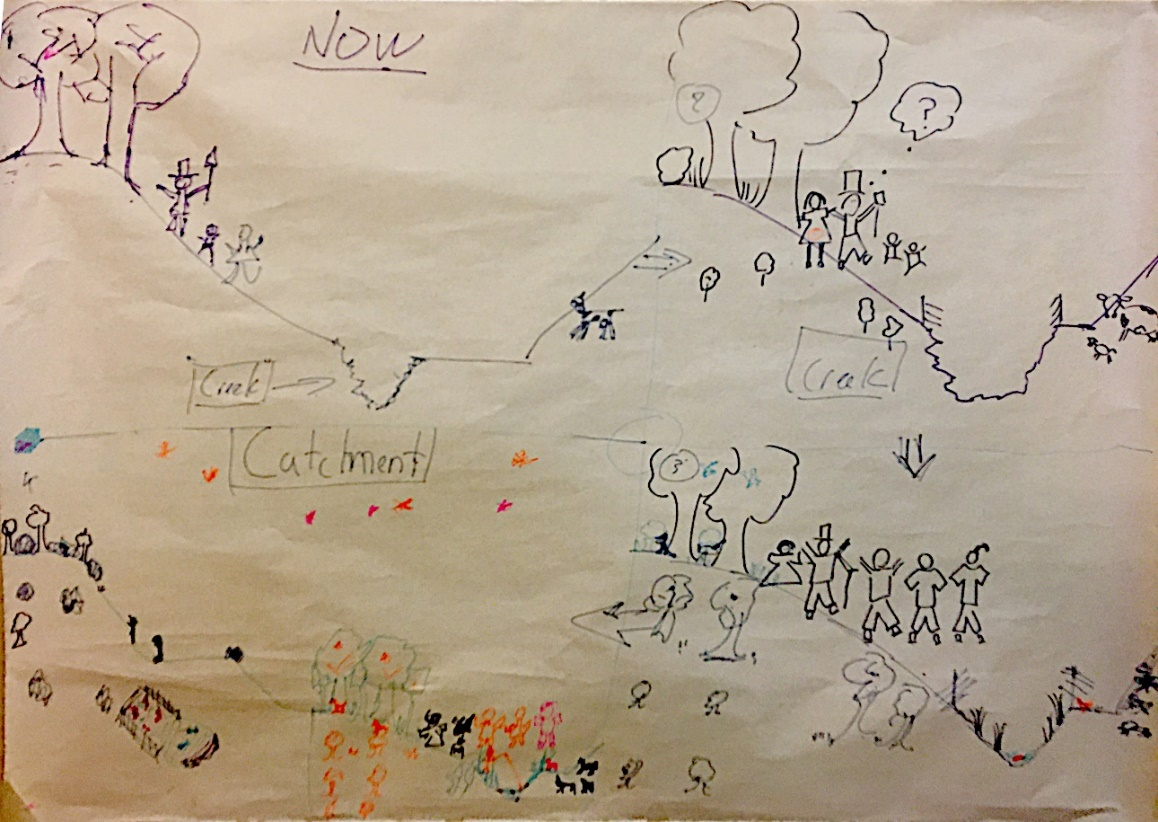 NOW
?
Creek
Creek
Catchment